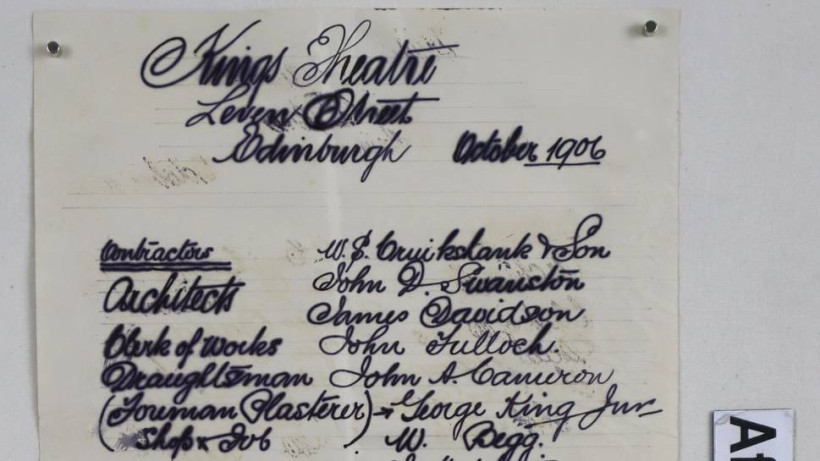 Kings Theatre
Leven Street
Edinburgh October 1906
Contractors W. S. Cruikshank & Son
Architects John D. Swanston
James Davidson
Clerk of Works John Tulloch
Draughtsman John A. Cameron
(Foreman Plasterer) George King Jun
Shop & Job W. Begg.
At